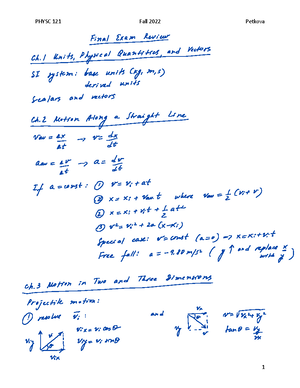 PHYSC 121 Fall 2022 Petkova
Final Exam Review
Ch.1 Units, Physical Quantities, and Vectors
SI system: base units (kg, m, s)
derived units
Scalars and vectors
Ch.2 Motion Along a Straight Line
vav = Δx/Δt → v = dx/dt
aav = Δv/Δt → a = dv/dt
If a = const: ① v = vi + at
② x = xi + vav t where vav = 1/2 (vi + v)
② x = xi + vi t + 1/2 at²
③ v² = vi² + 2a (x - xi)
Special case: v = const (a = 0) → x = xi + vi t
Free fall: a = -9.80 m/s² (y ↑ and replace x with y)
Ch.3 Motion in Two and Three Dimensions
Projectile motion:
① resolve vi: and
vix = vi cosθ
viy = vi sinθ
v = √vx² + vy²
tanθ = vy/vx
viy vi θ vix
vx vy θ v
1